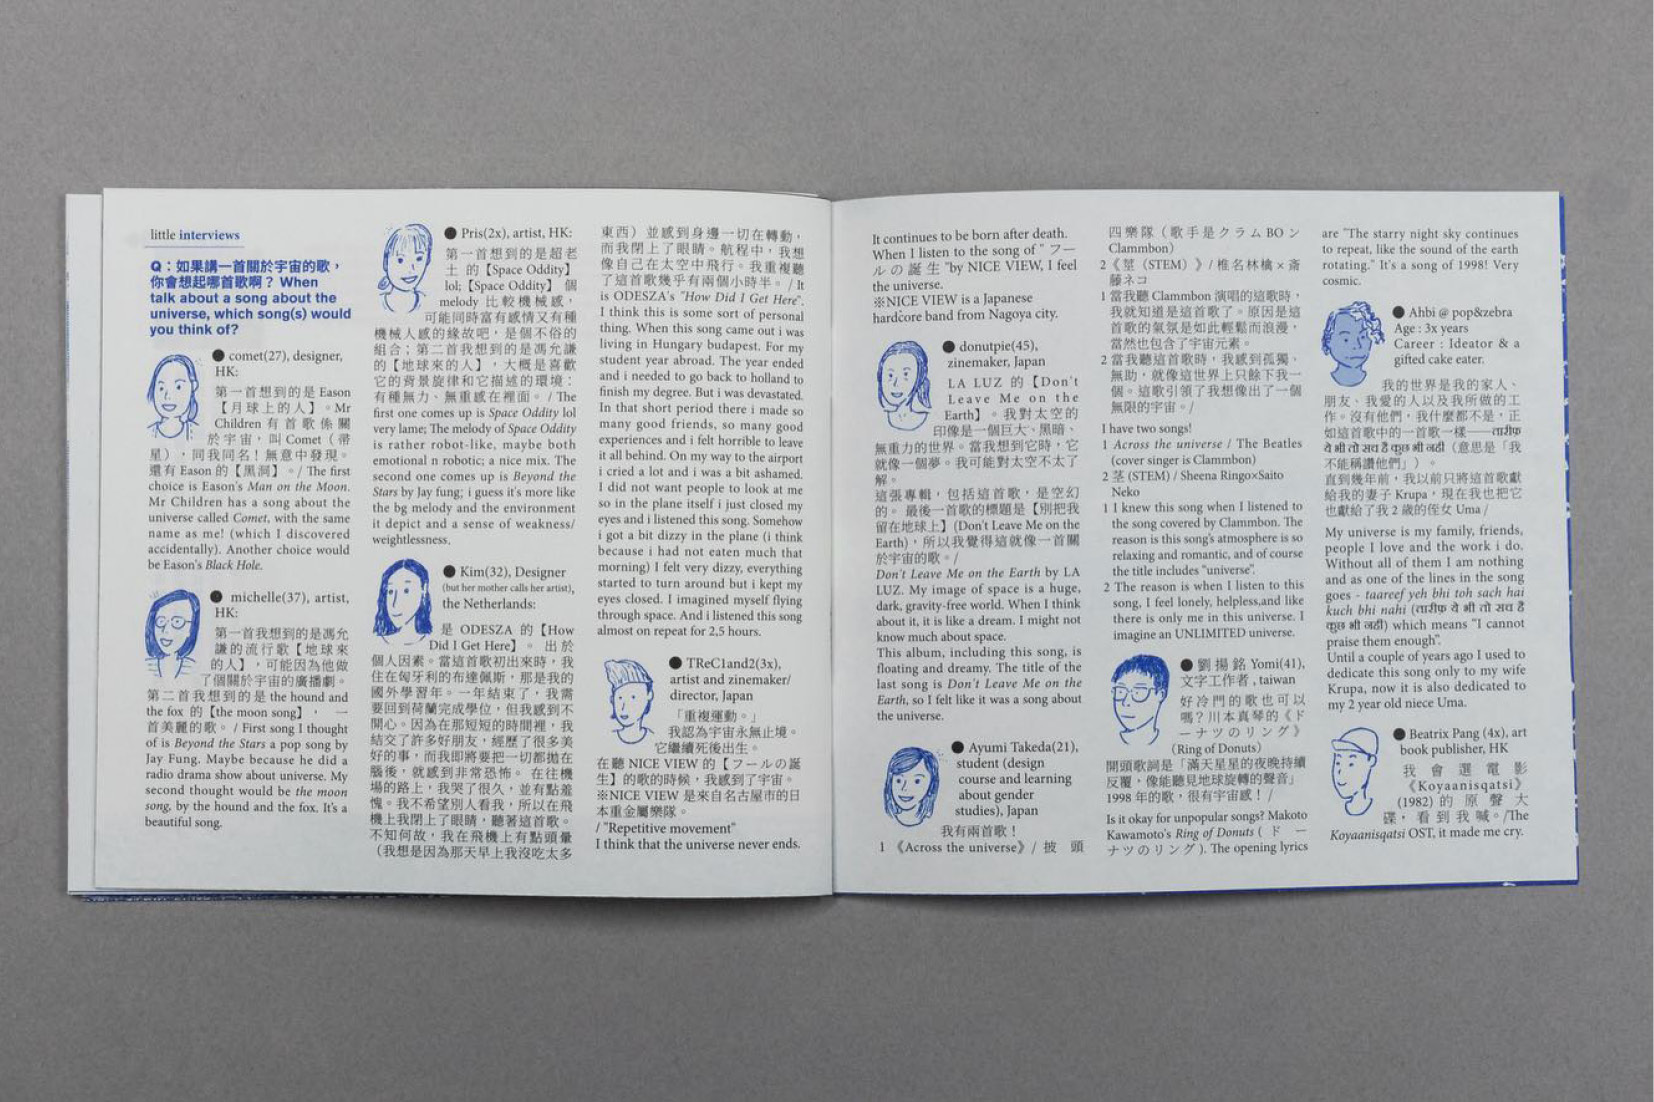 little interviews
Q：如果講一首關於宇宙的歌，
你會想起哪首歌啊？ When
talk about a song about the
universe, which song(s) would
you think of?
● comet(27), designer,
HK:
第一首想到的是 Eason
【月球上的人】。Mr
Children 有首歌係關
於宇宙，叫 Comet（彗
星），同我同名！無意中發現。
還有 Eason 的【黑洞】。/ The first
choice is Eason's Man on the Moon.
Mr Children has a song about the
universe called Comet, with the same
name as me! (which I discovered
accidentally). Another choice would
be Eason's Black Hole.
● michelle(37), artist,
HK:
第一首我想到的是馮允
謙的流行歌【地球來
的人】，可能因為他做
了個關於宇宙的廣播劇。
第二首我想到的是 the hound and
the fox 的【the moon song】， 一
首美麗的歌。/ First song I thought
of is Beyond the Stars a pop song by
Jay Fung. Maybe because he did a
radio drama show about universe. My
second thought would be the moon
song, by the hound and the fox. It's a
beautiful song.
● Pris(2x), artist, HK:
第一首想到的是超老
土 的【Space Oddity】
lol;【Space Oddity】 個
melody 比較機械感，
可能同時富有感情又有種
機械人感的緣故吧，是個不俗的
組合；第二首我想到的是馮允謙
的【地球來的人】，大概是喜歡
它的背景旋律和它描述的環境：
有種無力、無重感在裡面。/ The
first one comes up is Space Oddity lol
very lame; The melody of Space Oddity
is rather robot-like, maybe both
emotional n robotic; a nice mix. The
second one comes up is Beyond the
Stars by Jay fung; i guess it's more like
the bg melody and the environment
it depict and a sense of weakness/
weightlessness.
● Kim(32), Designer
(but her mother calls her artist),
the Netherlands:
是 ODESZA 的【How
Did I Get Here】。 出於
個人因素。當這首歌初出來時，我
住在匈牙利的布達佩斯，那是我的
國外學習年。一年結束了，我需
要回到荷蘭完成學位，但我感到不
開心。因為在那短短的時間裡，我
結交了許多好朋友，經歷了很多美
好的事，而我即將要把一切都拋在
腦後，就感到非常恐怖。 在往機
場的路上，我哭了很久，並有點羞
愧。我不希望別人看我，所以在飛
機上我閉上了眼睛，聽著這首歌。
不知何故，我在飛機上有點頭暈
（我想是因為那天早上我沒吃太多
東西）並感到身邊一切在轉動，
而我閉上了眼睛。航程中，我想
像自己在太空中飛行。我重複聽
了這首歌幾乎有兩個小時半。/ It
is ODESZA's "How Did I Get Here".
I think this is some sort of personal
thing. When this song came out i was
living in Hungary budapest. For my
student year abroad. The year ended
and i needed to go back to holland to
finish my degree. But i was devastated.
In that short period there i made so
many good friends, so many good
experiences and i felt horrible to leave
it all behind. On my way to the airport
i cried a lot and i was a bit ashamed.
I did not want people to look at me
so in the plane itself i just closed my
eyes and i listened this song. Somehow
i got a bit dizzy in the plane (i think
because i had not eaten much that
morning) I felt very dizzy, everything
started to turn around but i kept my
eyes closed. I imagined myself flying
through space. And i listened this song
almost on repeat for 2,5 hours.
● TReC1and2(3x),
artist and zinemaker/
director, Japan
「重複運動。」
我認為宇宙永無止境。
它繼續死後出生。
在聽 NICE VIEW 的【フールの誕
生】的歌的時候，我感到了宇宙。
※NICE VIEW 是來自名古屋市的日
本重金屬樂隊。
/ "Repetitive movement"
I think that the universe never ends.
It continues to be born after death.
When I listen to the song of " フー
ルの誕生 "by NICE VIEW, I feel
the universe.
※NICE VIEW is a Japanese
hardcore band from Nagoya city.
● donutpie(45),
zinemaker, Japan
LA LUZ 的【Don't
Leave Me on the
Earth】。我對太空的
印像是一個巨大、黑暗、
無重力的世界。當我想到它時，它
就像一個夢。我可能對太空不太了
解。
這張專輯，包括這首歌，是空幻
的。 最後一首歌的標題是【別把我
留在地球上】(Don't Leave Me on the
Earth)，所以我覺得這就像一首關
於宇宙的歌。/
Don't Leave Me on the Earth by LA
LUZ. My image of space is a huge,
dark, gravity-free world. When I think
about it, it is like a dream. I might not
know much about space.
This album, including this song, is
floating and dreamy. The title of the
last song is Don't Leave Me on the
Earth, so I felt like it was a song about
the universe.
● Ayumi Takeda(21),
student (design
course and learning
about gender
studies), Japan
我有兩首歌！
1 《Across the universe》/ 披 頭
四樂隊（歌手是クラム BO ン
Clammbon）
2《莖（STEM）》/ 椎名林檎 × 斎
藤ネコ
1 當我聽 Clammbon 演唱的這歌時，
我就知道是這首歌了。原因是這
首歌的氣氛是如此輕鬆而浪漫，
當然也包含了宇宙元素。
2 當我聽這首歌時，我感到孤獨、
無助，就像這世界上只餘下我一
個。這歌引領了我想像出了一個
無限的宇宙。/
I have two songs!
1 Across the universe / The Beatles
(cover singer is Clammbon)
2 茎 (STEM) / Sheena Ringo×Saito
Neko
1 I knew this song when I listened to
the song covered by Clammbon. The
reason is this song's atmosphere is so
relaxing and romantic, and of course
the title includes "universe".
2 The reason is when I listen to this
song, I feel lonely, helpless,and like
there is only me in this universe. I
imagine an UNLIMITED universe.
● 劉揚銘 Yomi(41),
文字工作者 , taiwan
好冷門的歌也可以
嗎？川本真琴的《ド
ーナツのリング》
(Ring of Donuts)
開頭歌詞是「滿天星星的夜晚持續
反覆，像能聽見地球旋轉的聲音」
1998 年的歌，很有宇宙感！ /
Is it okay for unpopular songs? Makoto
Kawamoto's Ring of Donuts ( ド ー
ナツのリング ). The opening lyrics
are "The starry night sky continues
to repeat, like the sound of the earth
rotating." It's a song of 1998! Very
cosmic.
● Ahbi @ pop&zebra
Age : 3x years
Career : Ideator & a
gifted cake eater.
我的世界是我的家人、
朋友、我愛的人以及我所做的工
作。沒有他們，我什麼都不是，正
如這首歌中的一首歌一樣——तारीफ़
ये भी तो सच है कुछ भी नहीं（意思是「我
不能稱讚他們」）。
直到幾年前，我以前只將這首歌獻
給我的妻子 Krupa，現在我也把它
也獻給了我 2 歲的侄女 Uma /
My universe is my family, friends,
people I love and the work i do.
Without all of them I am nothing
and as one of the lines in the song
goes - taareef yeh bhi toh sach hai
kuch bhi nahi (तारीफ़ ये भी तो सच है
कुछ भी नहीं) which means "I cannot
praise them enough".
Until a couple of years ago I used to
dedicate this song only to my wife
Krupa, now it is also dedicated to
my 2 year old niece Uma.
● Beatrix Pang (4x), art
book publisher, HK
我 會 選 電 影
《Koyaanisqatsi》
(1982) 的 原 聲 大
碟，看到我喊。/The
Koyaanisqatsi OST, it made me cry.